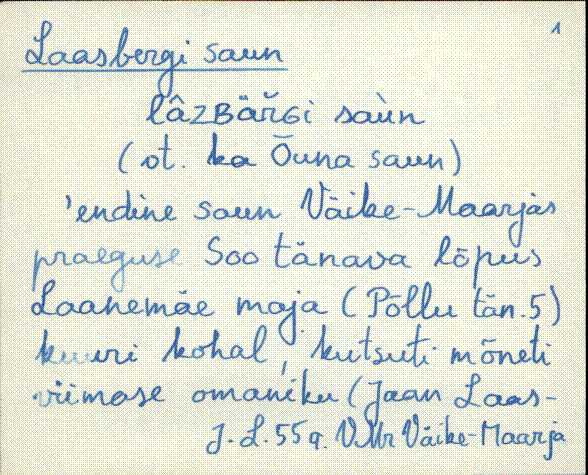 1
Laasbergi saun
lâzʙäřɢi saùn
(ot. ka Õuna saun)
'endine saun Väike-Maarjas
praeguse Soo tänava lõpus
Laanemäe maja (Põllu tän. 5)
kuuri kohal, kutsuti mõneti
viimase omaniku (Jaan Laas-
J. L. 55 a. VMr Väike-Maarja